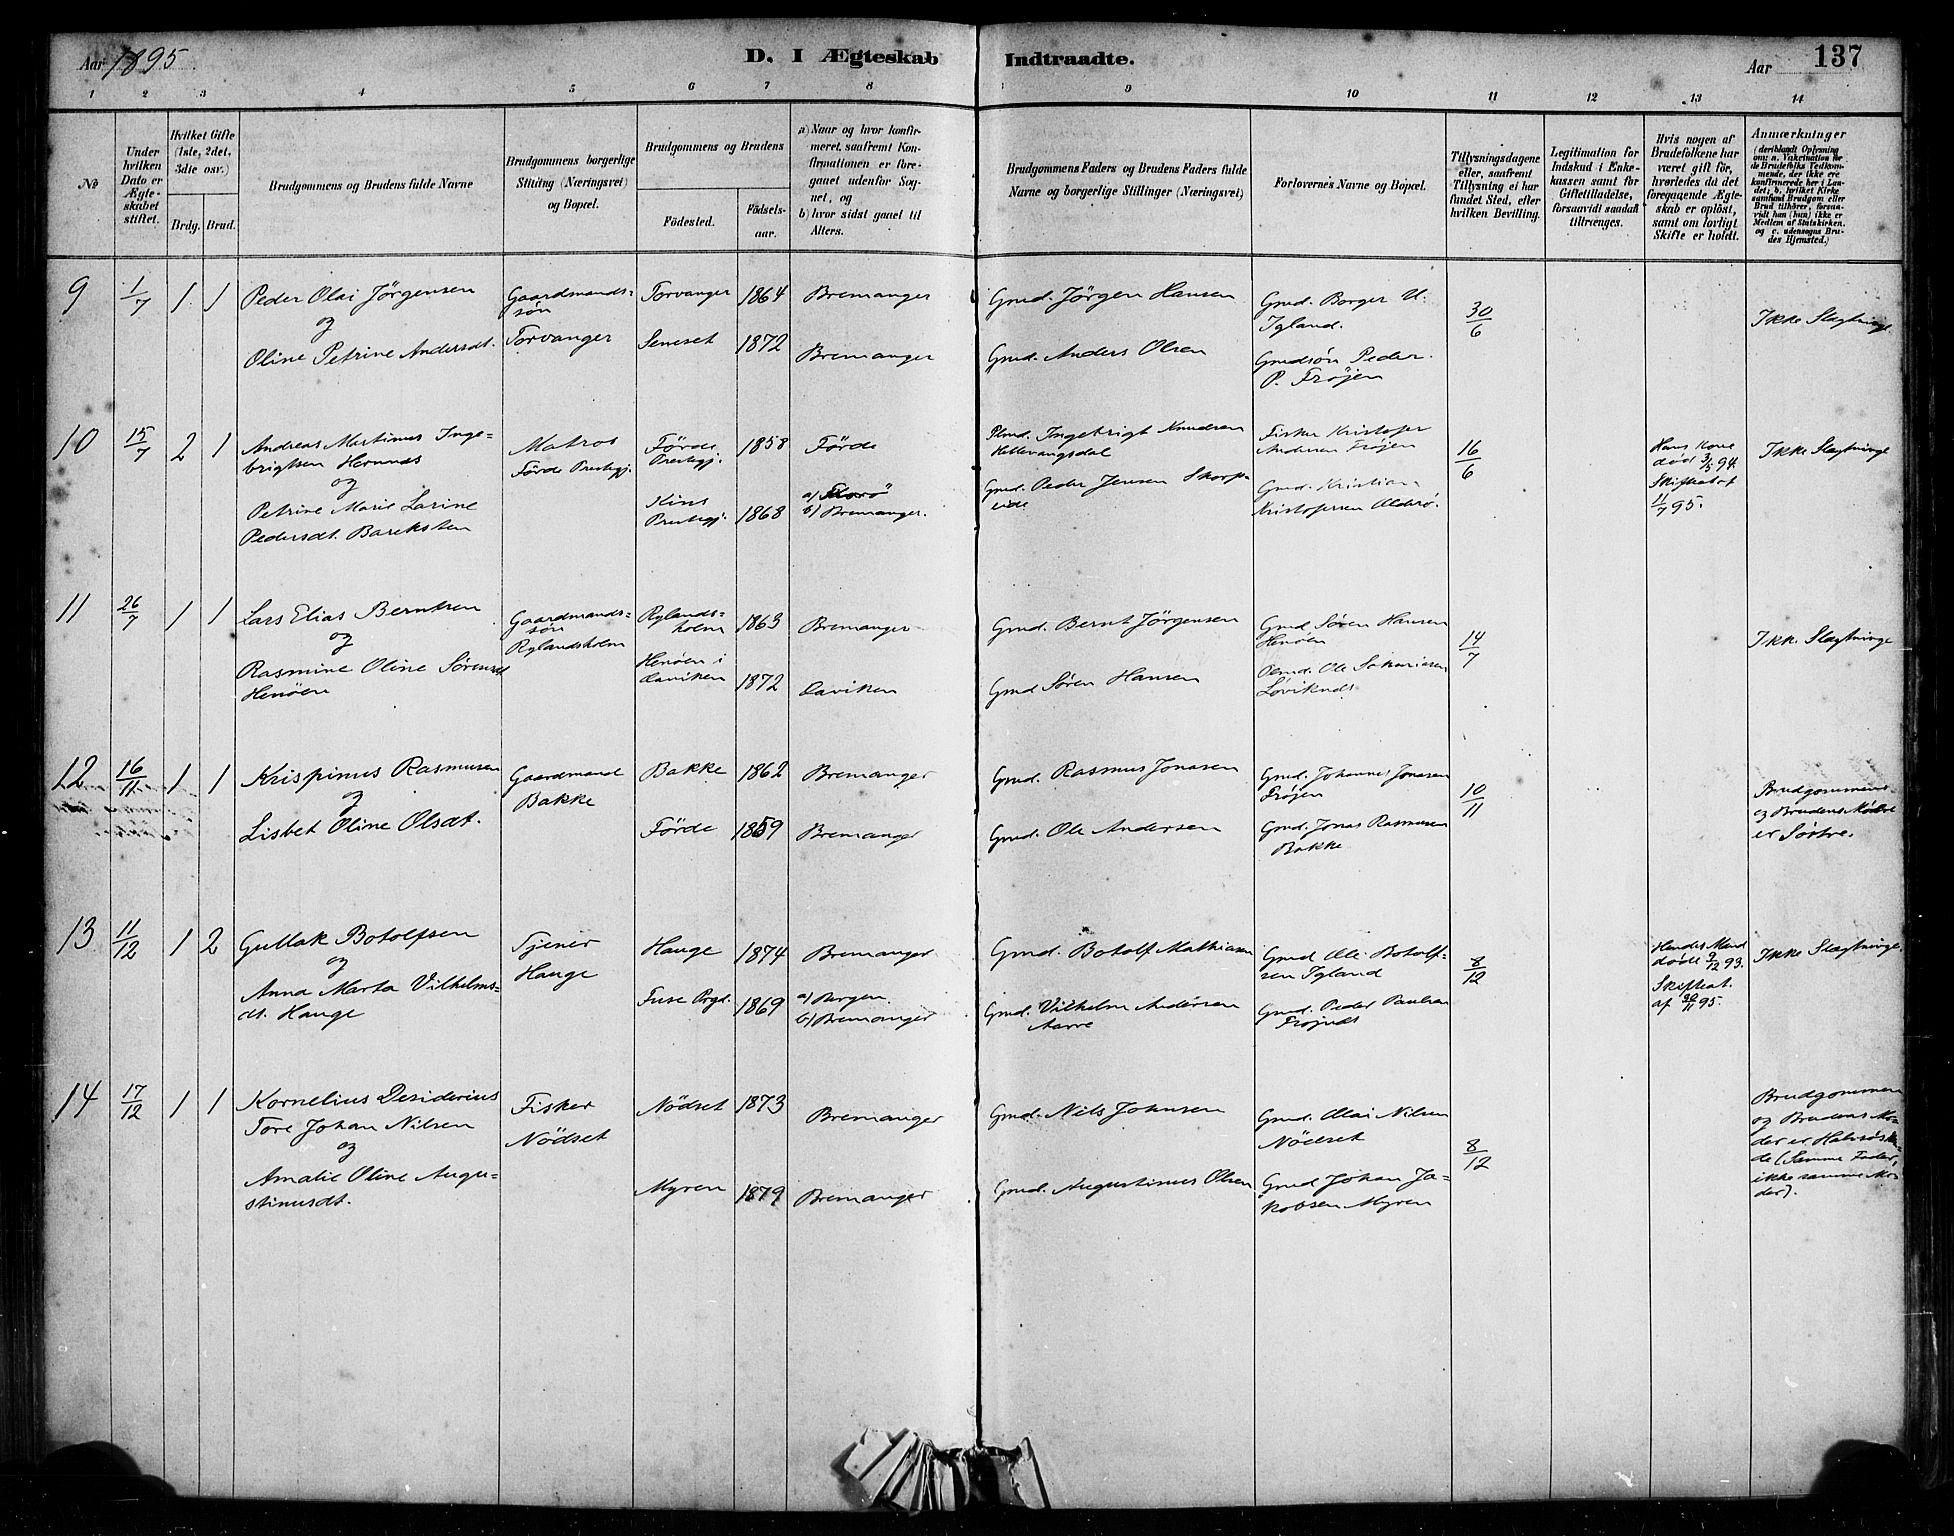 Aar 1895 D. I Ægteskab Indtraadte. Aar 137
1 2 3 4 5 6 7 8 9 10 11 12 13 14
No
Under hvilken Dato er Ægteskabet stiftet.
Hvilket Gifte (1ste, 2det, 3die osv.)
Brdg. Brud.
Brudgommens og Brudens fulde Navne
Brudgommens borgerlige Stilling (Næringsvei) og Bopæl.
Brudgommens og Brudens
Födested. Födsels-aar.
a) Naar og hvor konfirmeret, saafremt Konfirmationen er foregaaet udenfor Sognet, og
b) hvor sidst gaaet til Alters.
Brudgommens Faders og Brudens Faders fulde Navne og borgerlige Stillinger (Næringsvei)
Forlovernes Navne og Bopæl.
Tillysningsdagene eller, saafremt Tillysning ei har fundet Sted, efter hvilken Bevilling.
Legitimation for Indskud i Enkekassen samt for Giftetilladelse, forsaavidt saadan tiltrænges.
Hvis nogen af Brudefolkene har været gift för, hvorledes da det foregaaende Ægteskab er oplöst, samt om lovligt Skifte er holdt.
Anmærkninger (deriblandt Oplysning om: a. Vakcination for de Brudefolks Vedkommende, der ikke ere konfirmerede her i Landet; b. hvilket Kirkesamfund Brudgom eller Brud tilhörer, forsaavidt han (hun) ikke er Medlem af Statskirken, og c. udensogns Brudes Hjemsted.)
9 1/7 1 1
Peder Olai Jörgensen
og
Oline Petrine Andersdt.
Gaardmands-
sön
Torvanger
Torvanger 1864 Bremanger
Seneset 1872 Bremanger
Gmd. Jörgen Hansen
Gmd. Anders Olsen
Gmd. Borger U.
Igland.
Gmdsön Peder
P. Fröjen
30/6
Ikke Slagtninge
10 15/7 2 1
Andreas Martinus Inge-
brigtsen Hornnes
og
Petrine Marie Larine
Pedersdt. Bareksten
Matros
Förde Prestegj.
Förde
Prestegj. 1858 Förde
Kins
Prestegj. 1868
a) Florö
b) Bremanger.
Plmd. Ingebrigt Knudsen
Gmd. Peder Jensen Skorp-
eide
Fisker Kristofer
Andersen Fröjen
Gmd. Kristian
Kristofersen Alderö.
16/6
Hans Kone
död 3/5 94.
Skifteat. af
11/7 95.
Ikke Slagtninge
11 26/7 1 1
Lars Elias Berntsen
og
Rasmine Oline Sörensdt
Henöen
Gaardmands-
sön
Rylandsholm
Rylands-
holm 1863 Bremanger
Henöen i
Daviken 1872 Daviken
Gmd. Bernt Jörgensen
Gmd Sören Hansen
Gmd Sören Hansen
Henöen
Ole Sakariasen
Löviknds
14/7
Ikke Slagtninge
12 16/11 1 1
Krispinus Rasmusen
og
Lisbet Oline Olsdt.
Gaardmand
Bakke
Bakke 1862 Bremanger
Förde 1859 Bremanger
Gmd. Rasmus Jonasen
Gmd. Ole Andersen
Gmd. Johannes Jonasen
Fröjen
Gmd. Jonas Rasmusen
Bakke
10/11
Brudgommens
og Brudens Mödre
er Söstre.
13 11/12 1 2
Gullak Botolfsen
og
Anna Marta Vilhelms-
dt. Hauge
Tjener
Hauge
Hauge 1874 Bremanger
Fuse Prgd. 1869
a) Bergen.
b) Bremanger
Gmd. Botolf Mathiasen
Gmd. Vilhelm Andersen
Aarre
Gmd Ole Botolf-
sen Igland
Gmd. Peder Paulsen
Fröjnds
8/12
Hendes Mand
döde 9/12 93.
Skifteat.
af 30/11 95.
Ikke Slagtninge.
14 17/12 1 1
Kornelius Desiderius
Tore Johan Nilsen
og
Amalie Oline Augu-
stinusdt.
Fisker
Nödset
Nödset 1873 Bremanger
Myren 1879 Bremanger
Gmd. Niels Johnsen
Gmd. Augustinus Olsen
Gmd. Olai Nilsen
Nödset
Gmd Johan Ja-
kobsen Myren
8/12
Brudgommen
og Brudens Mo-
der er Halvsösken-
de (Samme Fader,
ikke samme Mo-
der).